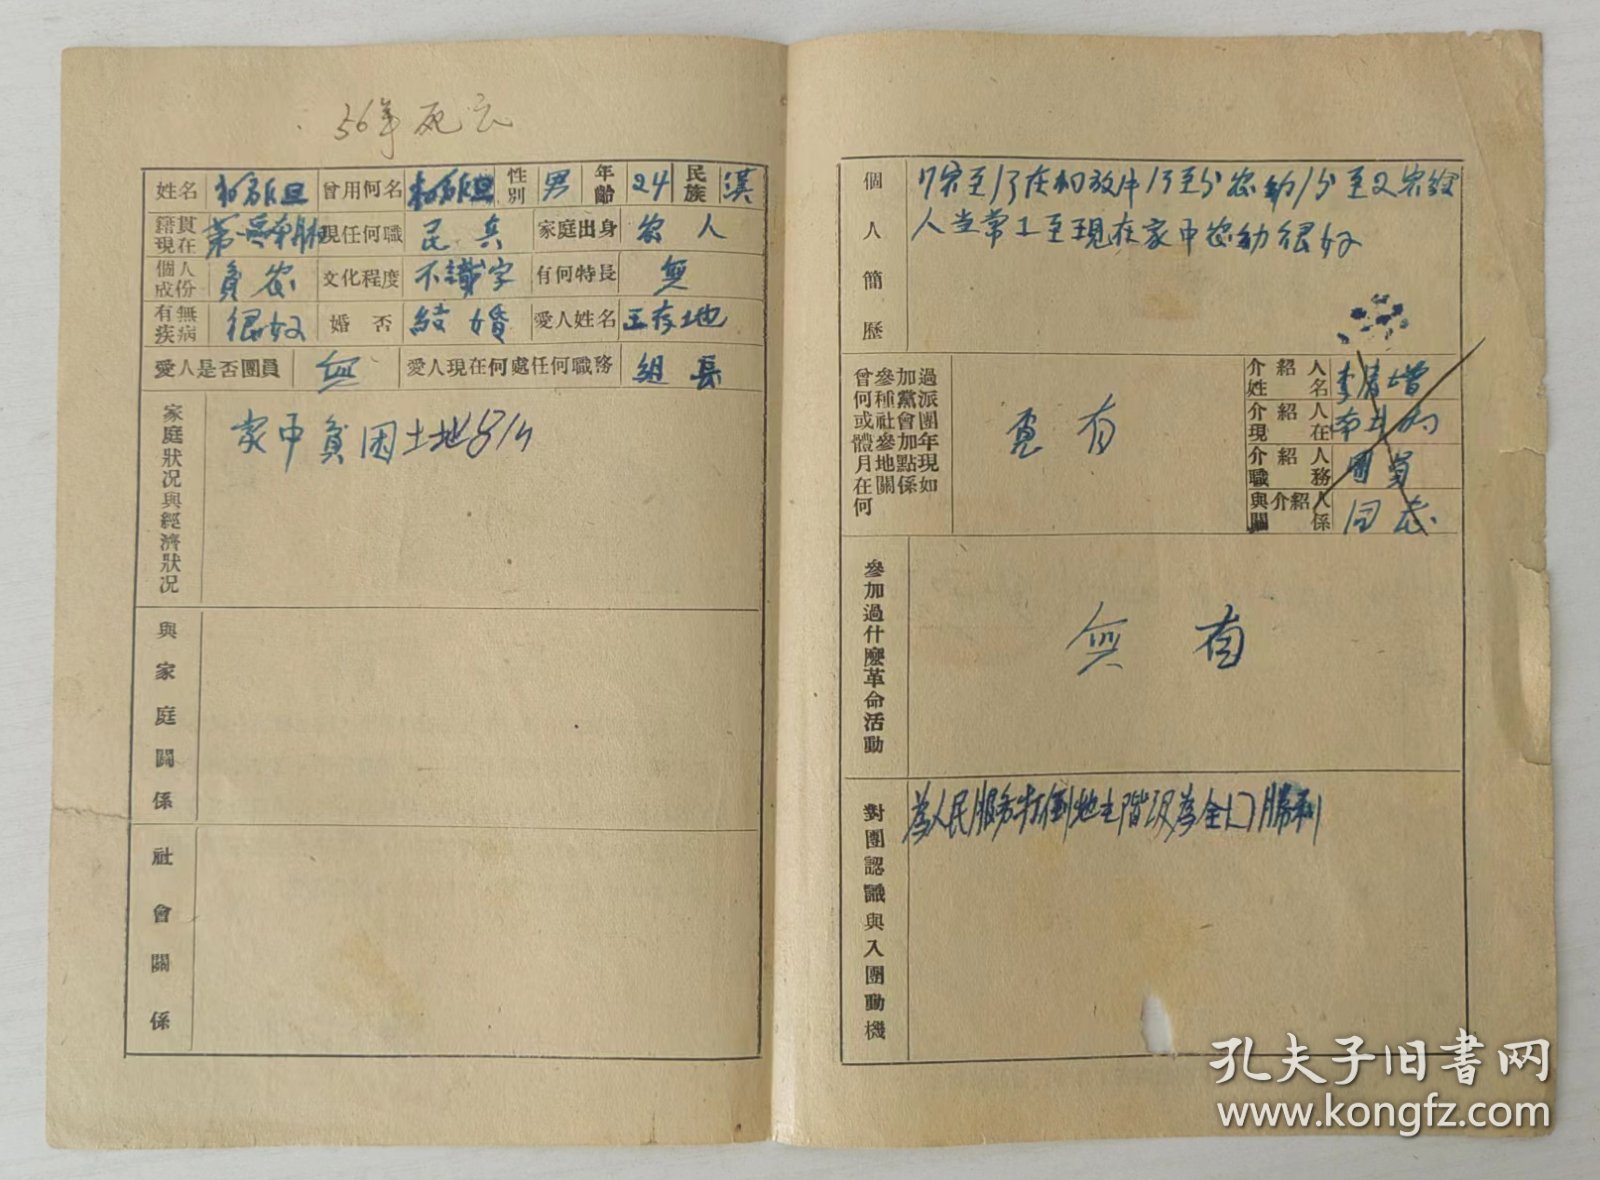 56年死亡
姓名 曾用何名 性別 男 年齡 24 民族 漢
籍貫現在 第一 現任何職 民兵 家庭出身 農人
個人成份 貧農 文化程度 不識字 有何特長 無
有無疾病 很好 婚否 結婚 愛人姓名
愛人是否團員 無 愛人現在何處任何職務 組長
家庭狀況與經濟狀況 家中貧困土地
與家庭關係
社會關係
個人簡歷 7宋至13在 放牛13至 至2宋給
人当常工至現在家中 很好
曾參加過何種黨派或社會團體參加年月地點現在關係如何 有
介紹人姓名
介紹人現在
介紹人職務 團員
與介紹人關係 同志
參加過什麼革命活動 無有
對團認識與入團動機 為人民服务打倒地主階级為全 勝利
孔夫子旧書网
www.kongfz.com